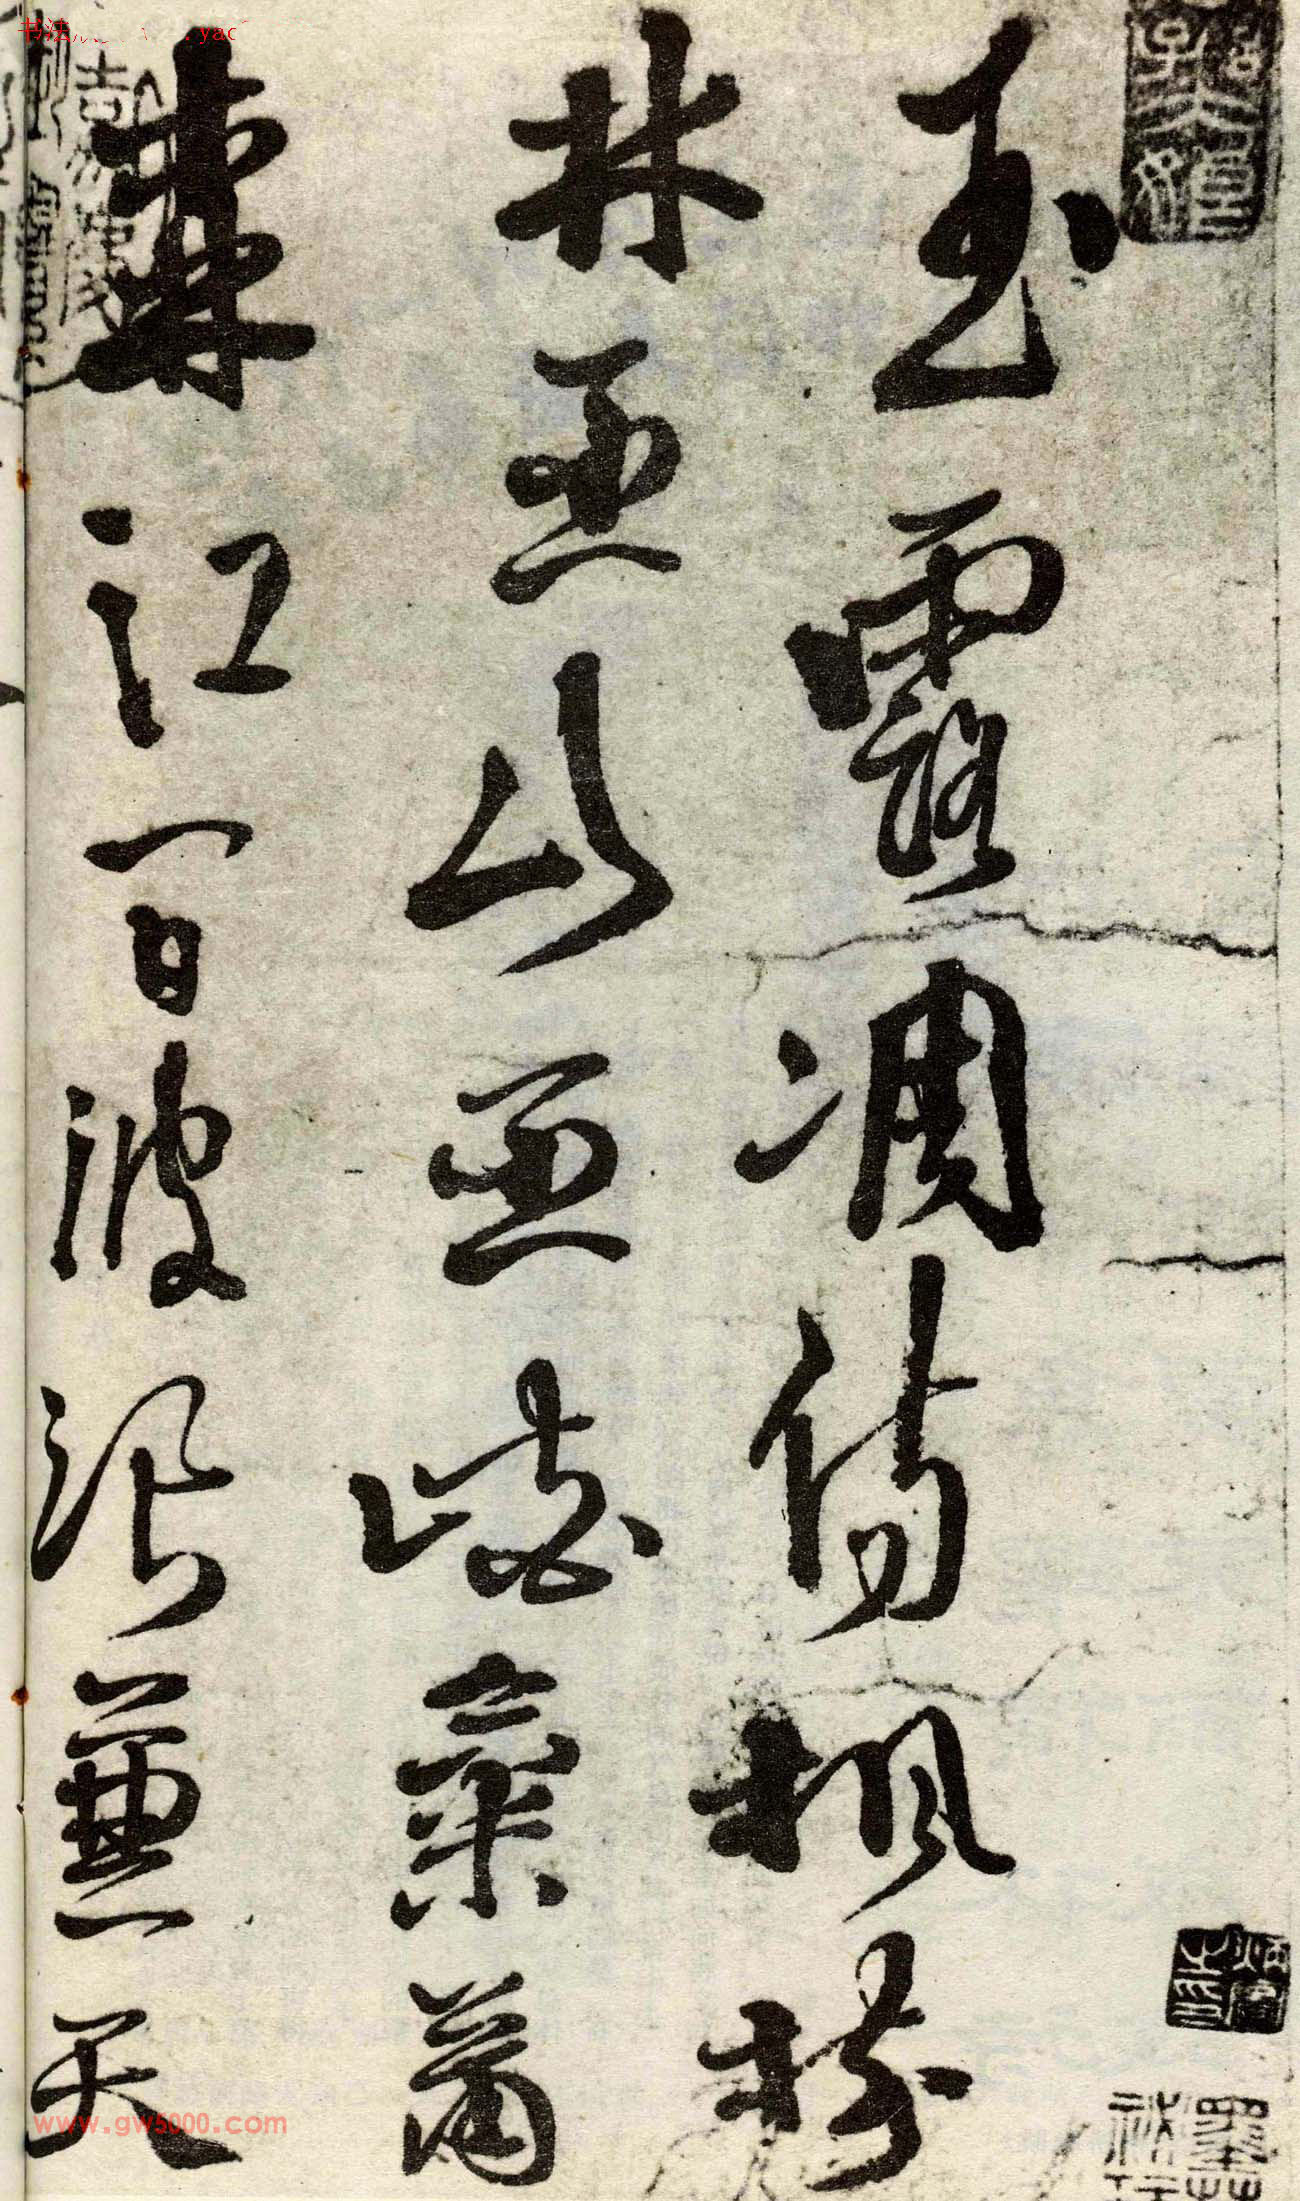 玉露凋傷楓樹
林巫山巫峽氣蕭
森江間波浪兼天
书法
www.gw5000.com